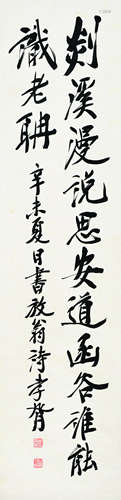 剡溪漫說思安道函谷誰能
識老聃
辛未夏日書放翁詩孝胥